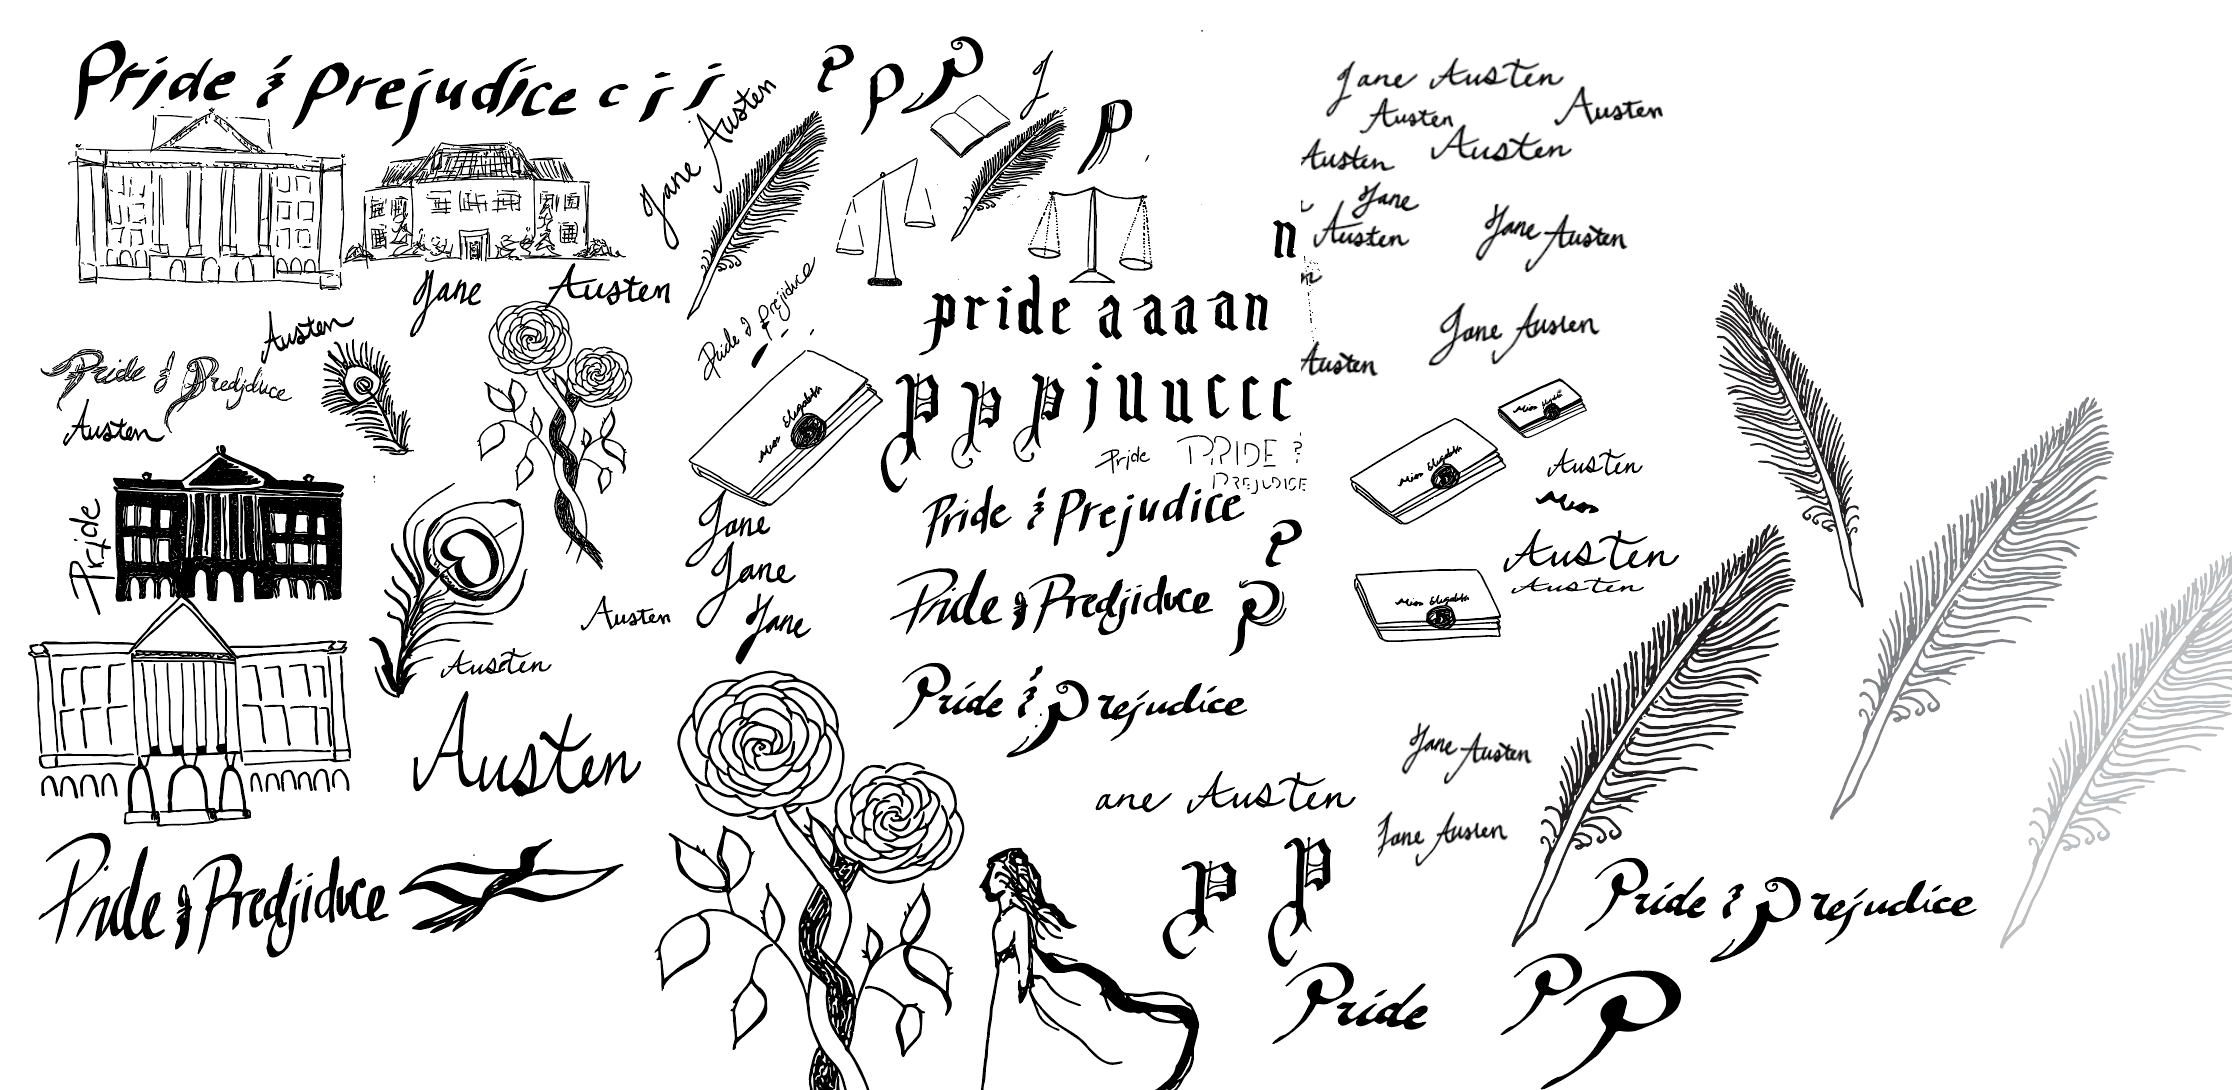 Pride & Prejudice c i i
P P P J
P
Jane Austen
Jane Austen
Austen
Austen
Austen
Austen
Jane
Austen
Jane Austen
n
Jane Austen
pride a a a a n
Jane Austen
Austen
Pride & Prejiduce
Austen
Pride & Predjduce
Austen
Miss Elizabeth
p p p j u u c c c
Pride
PRIDE &
PREJUDICE
Miss Elizabeth
Miss Elizabeth
Austen
Miss
Pride
Jane
Jane
Jane
Pride & Prejudice
P
Austen
Austen
Miss Elizabeth
Pride & Predjiduce
P
Austen
Austen
Pride & Prejudice
Austen
Jane Austen
ane Austen
Jane Austen
Pride & Predjiduce
P P
Pride & Prejudice
Pride
P P